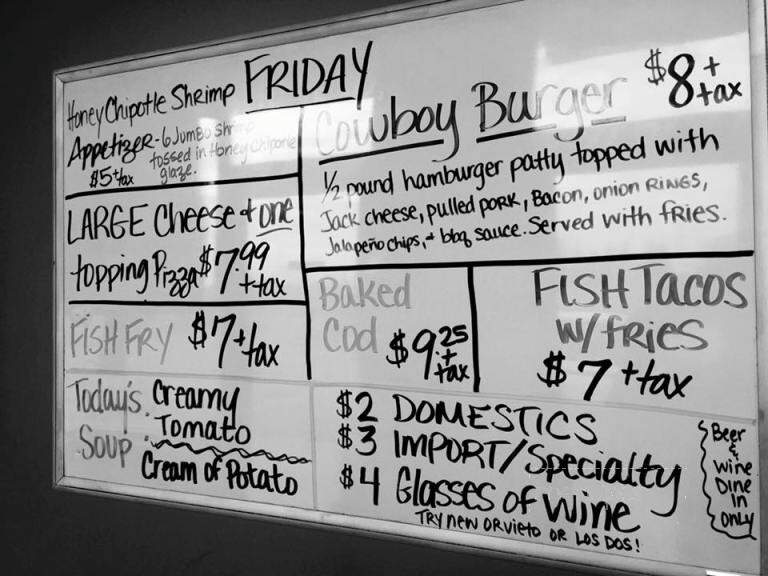 FRIDAY
Honey Chipotle Shrimp
Appetizer - 6 Jumbo Shrimp
tossed in Honey Chipotle
$5 + tax glaze.
LARGE Cheese + one
topping Pizza $7.99
+ tax
FISH FRY $7 + tax
Today's Creamy
Soup: Tomato
Cream of Potato
Cowboy Burger $8 +
+ tax
1/2 pound hamburger patty topped with
Jack cheese, pulled pork, Bacon, onion RINGS,
Jalapeño chips, + bbq sauce. Served with fries.
Baked
Cod $9.25
+
tax
FISH Tacos
w/ fries
$7 + tax
$2 DOMESTICS
$3 IMPORT/Specialty
$4 Glasses of wine
TRY new ORvieto OR LOS DOS!
Beer
&
wine
Dine
In
only